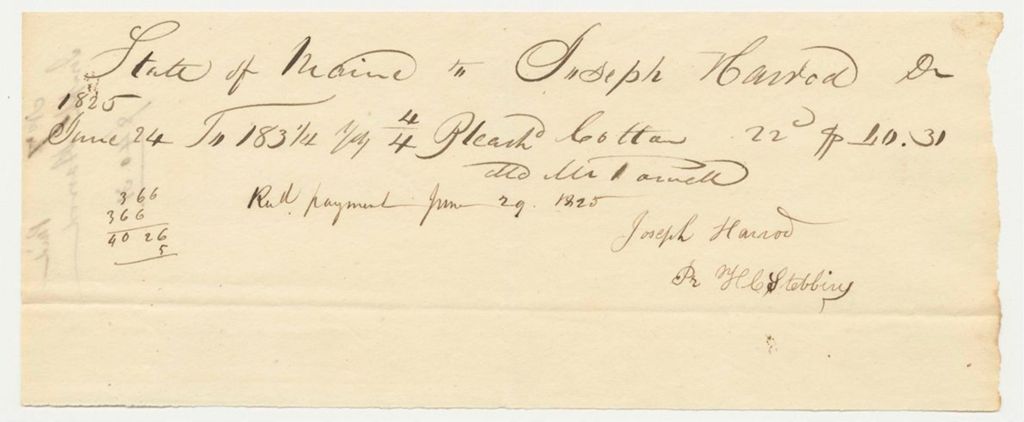 State of Maine to Joseph Harrod Dr
1825
June 24 To 183 1/4 yds 4/4 Bleachd Cotton 22c $ 40.31
Mr
366
366
40 26
5
Recd payment June 29. 1825
Joseph Harrod
Pr H C Stebbins